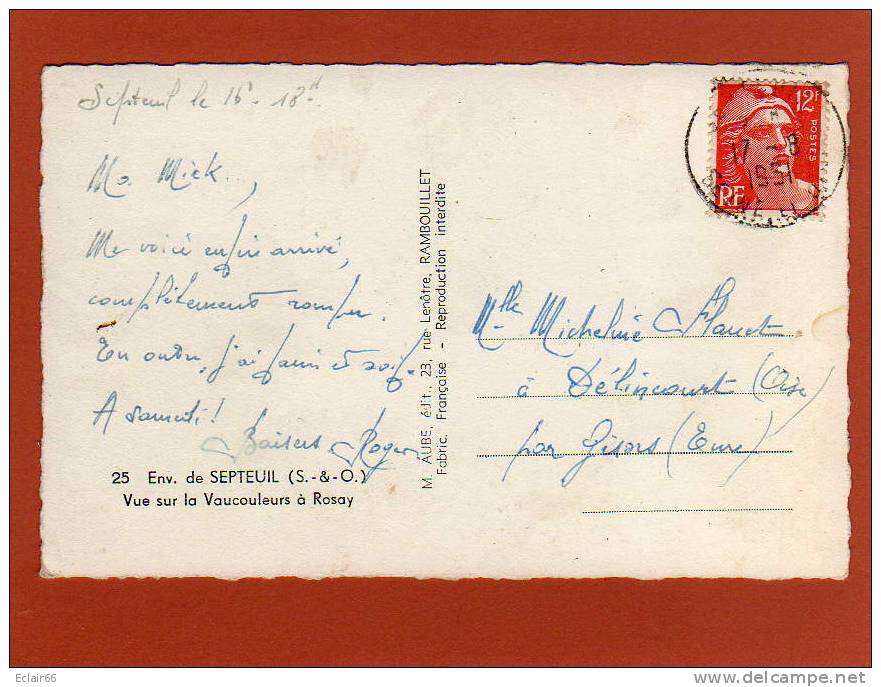 Septeuil le 16
Mic Mick.,
Me voici enfin arrivé,
complètement rompu.
En outre, j'ai faim et soif.
A samedi!
Baisers Roger
25 Env. de SEPTEUIL (S.-&-O.)
Vue sur la Vaucouleurs à Rosay
M. AUBE, édit., 23, rue Lenôtre, RAMBOUILLET
Fabric. Française - Reproduction interdite
12F
POSTES
RF
17 - 8
1951
Mlle Micheline
à Délincourt (Oise)
par Gisors (Eure)
Eclair66
www.delcampe.net